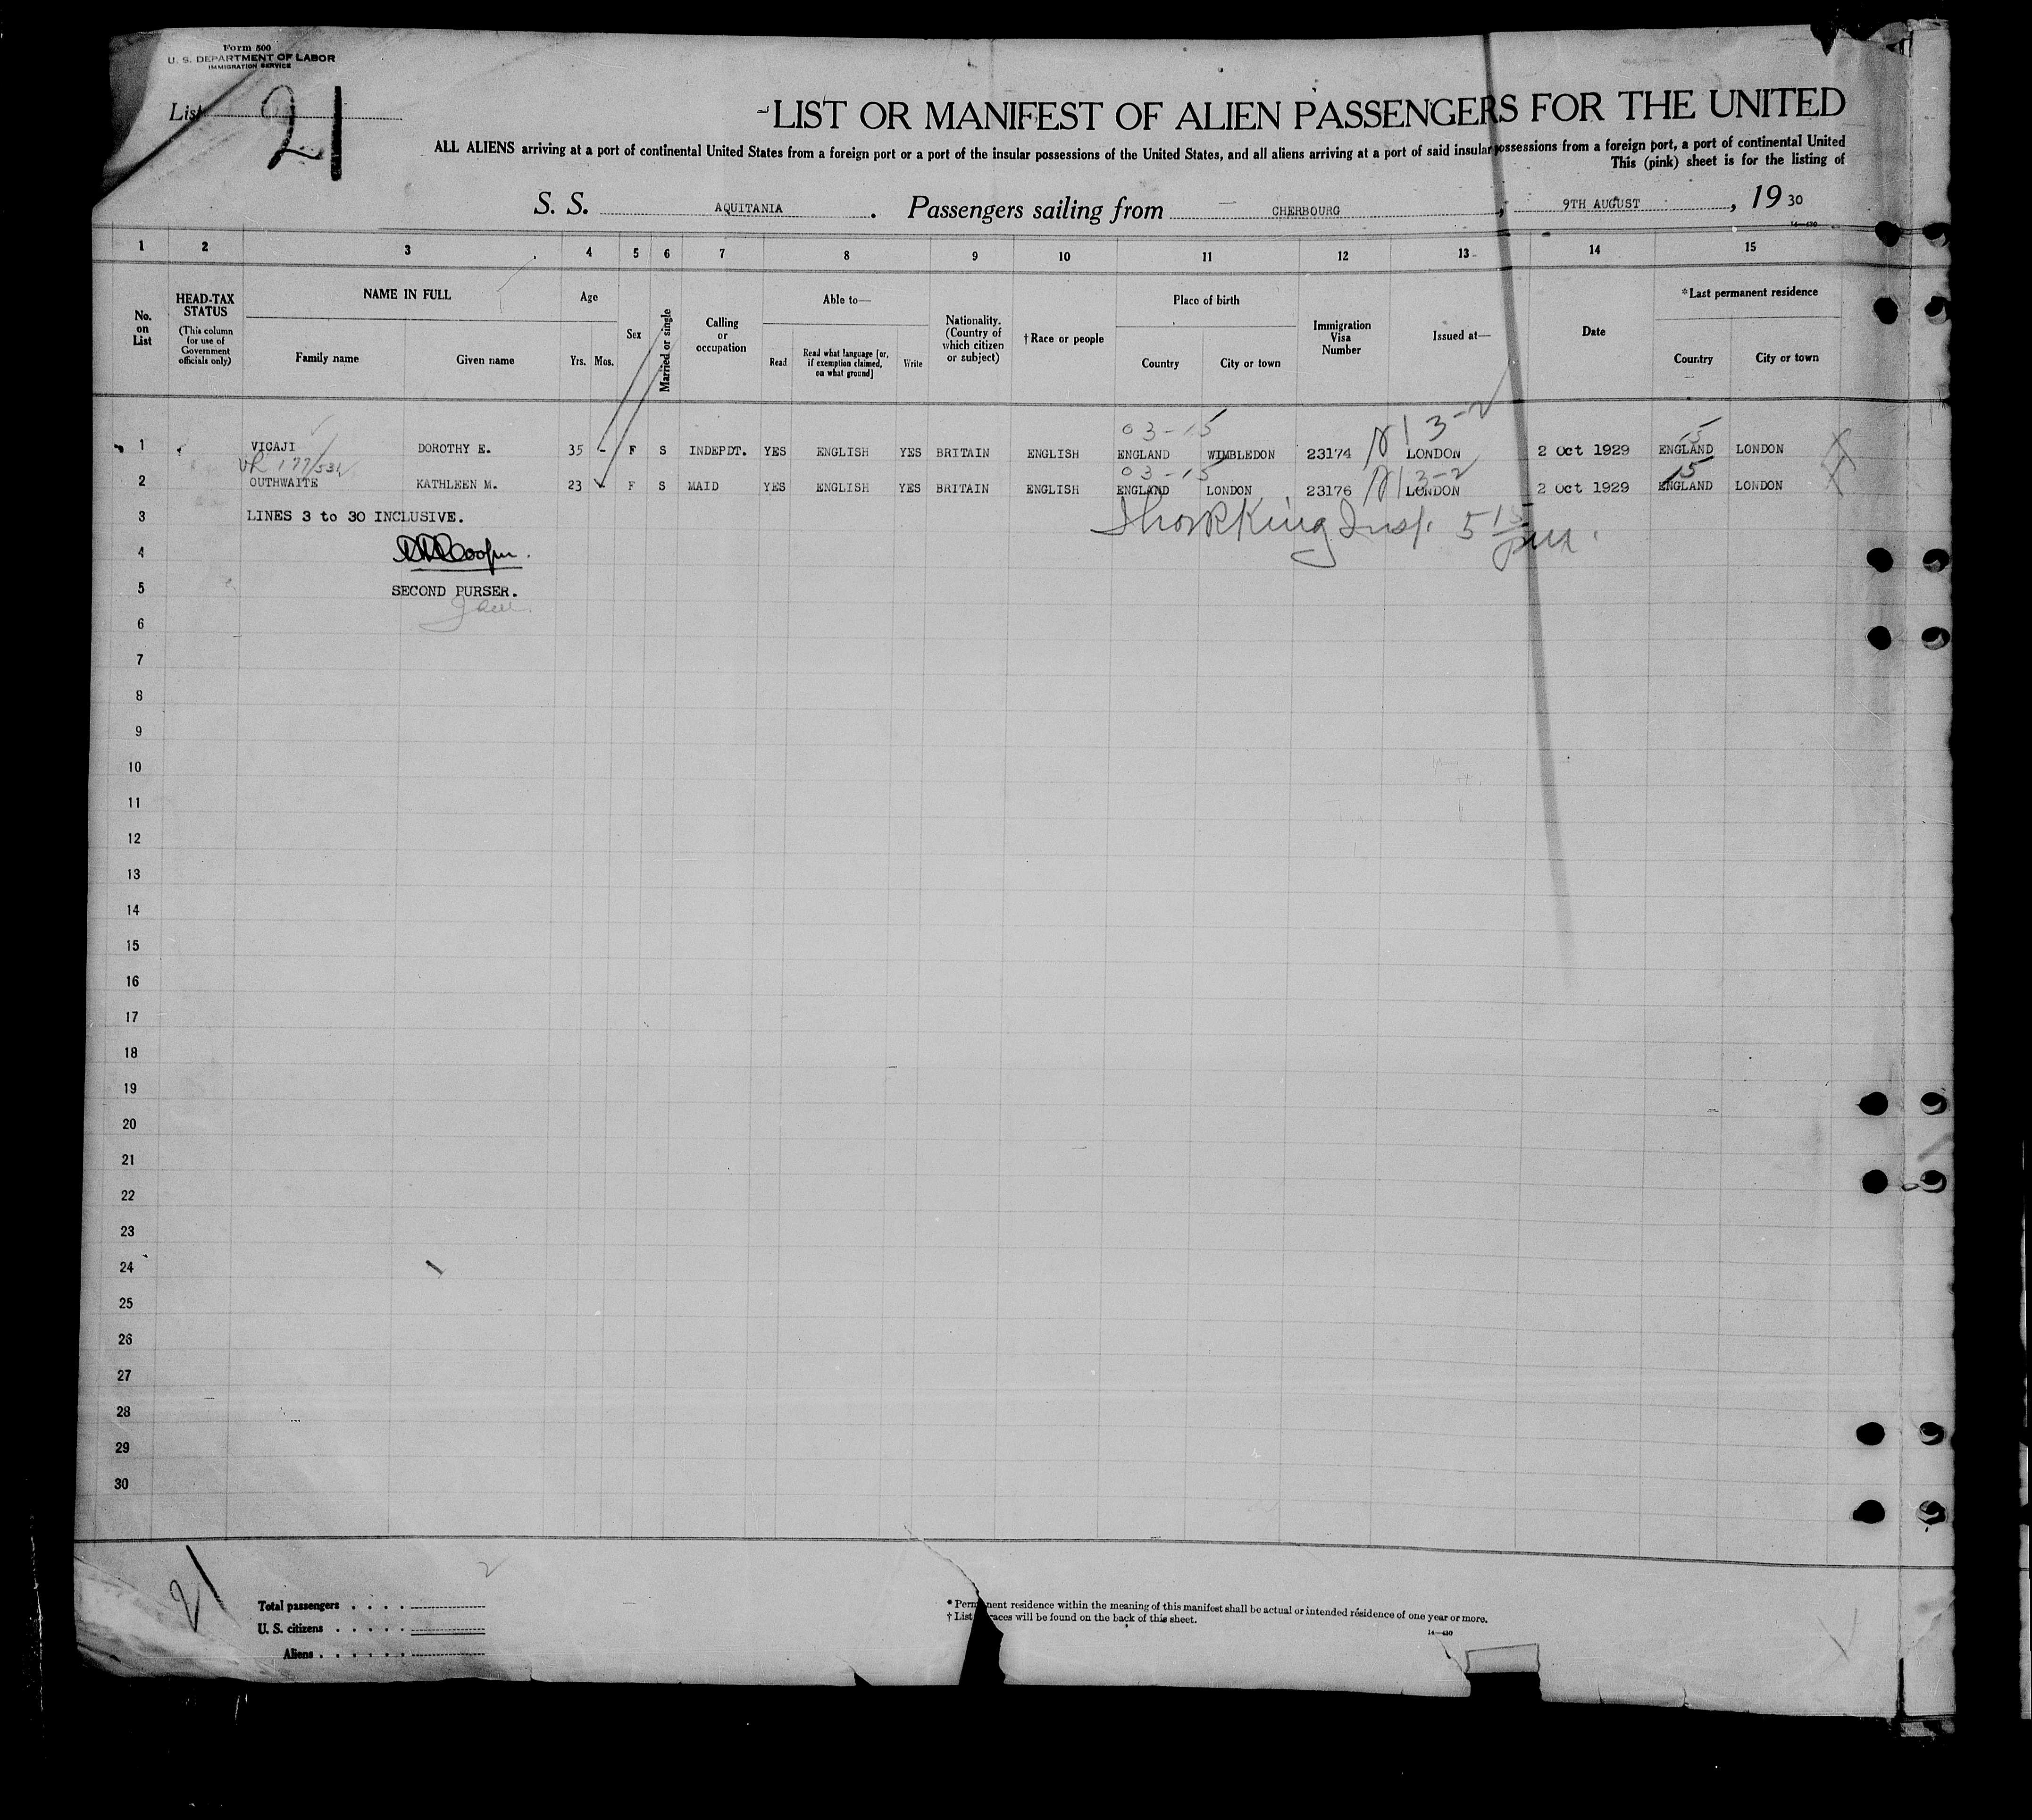 Form 500
U. S. DEPARTMENT OF LABOR
IMMIGRATION SERVICE
List 21
LIST OR MANIFEST OF ALIEN PASSENGERS FOR THE UNITED
ALL ALIENS arriving at a port of continental United States from a foreign port or a port of the insular possessions of the United States, and all aliens arriving at a port of said insular possessions from a foreign port, a port of continental United
This (pink) sheet is for the listing of
S. S. AQUITANIA. Passengers sailing from CHERBOURG, 9TH AUGUST, 19 30
14—430
1 2 3 4 5 6 7 8 9 10 11 12 13 14 15
No. on List
HEAD-TAX STATUS (This column for use of Government officials only)
NAME IN FULL
Family name Given name
Age
Yrs. Mos.
Sex
Married or single
Calling or occupation
Able to—
Read Read what language [or, if exemption claimed, on what ground] Write
Nationality. (Country of which citizen or subject)
†Race or people
Place of birth
Country City or town
Immigration Visa Number
Issued at—
Date
*Last permanent residence
Country City or town
03-15 13-2 15
1 VICAJI DOROTHY E. 35 - F S INDEPDT. YES ENGLISH YES BRITAIN ENGLISH ENGLAND WIMBLEDON 23174 LONDON 2 Oct 1929 ENGLAND LONDON
VR 177/532 03-15 13-2 15
2 OUTHWAITE KATHLEEN M. 23 F S MAID YES ENGLISH YES BRITAIN ENGLISH ENGLAND LONDON 23176 LONDON 2 Oct 1929 ENGLAND LONDON
3 LINES 3 to 30 INCLUSIVE.
King Insp. 5 15 pm.
4 Cooper.
5 SECOND PURSER.
6
7
8
9
10
11
12
13
14
15
16
17
18
19
20
21
22
23
24
25
26
27
28
29
30
21
2
Total passengers . . . .
U. S. citizens . . . . .
Aliens . . . . . .
* Permanent residence within the meaning of this manifest shall be actual or intended residence of one year or more.
† List races will be found on the back of this sheet.
14—430